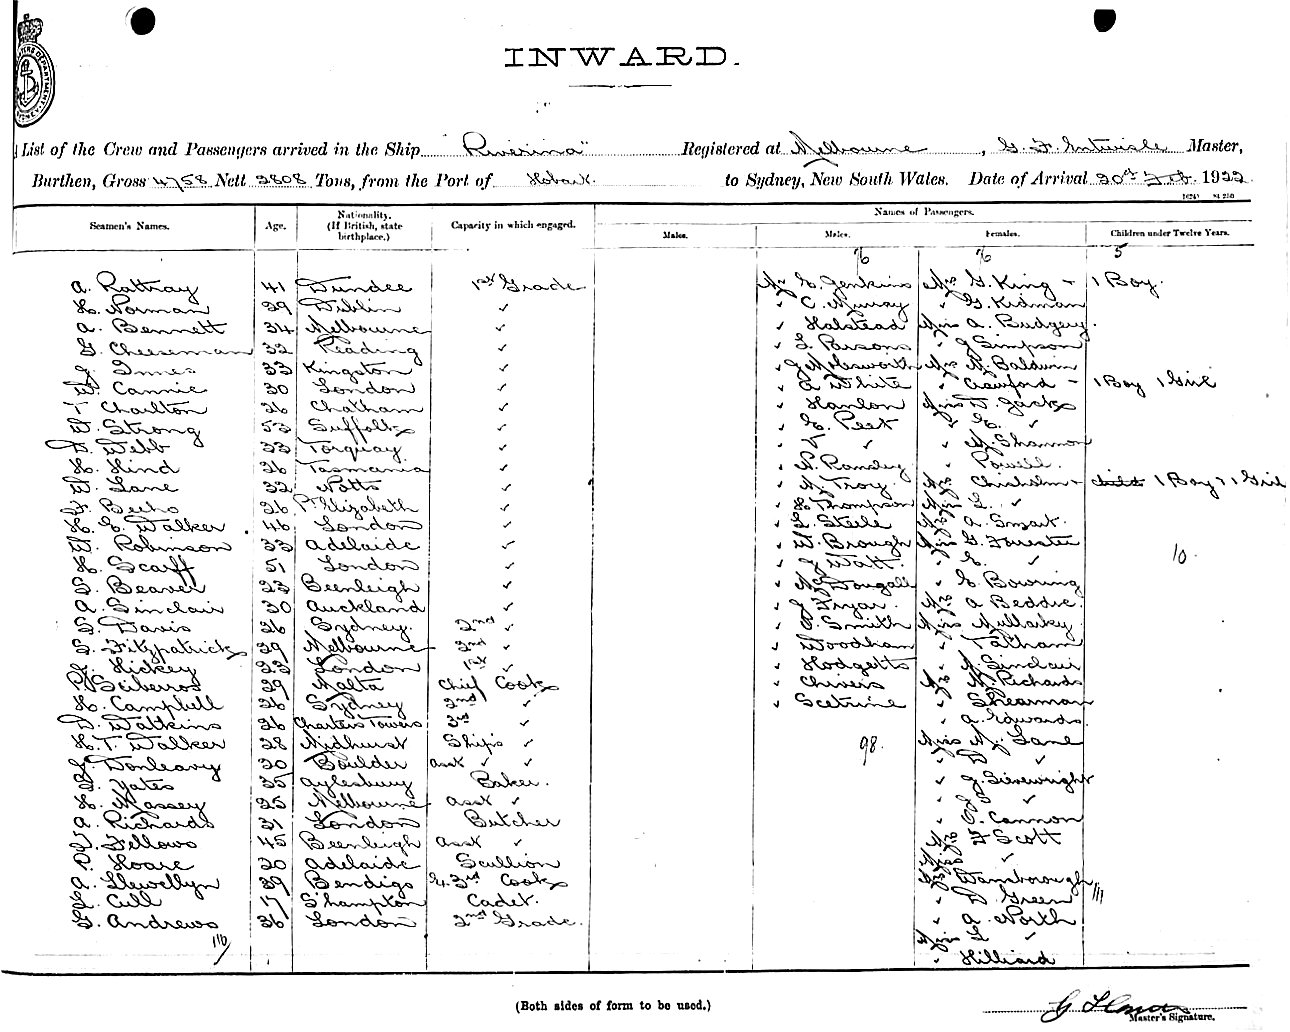 INWARD.
List of the Crew and Passengers arrived in the Ship "Riverina" Registered at Melbourne, G. F. Entwisle Master,
Burthen, Gross 4758 Nett 2808 Tons, from the Port of Hobart. to Sydney, New South Wales. Date of Arrival 20th Feb. 1922
Names of Passengers.
Seamen's Names. Age. Nationality. (If British, state birthplace.) Capacity in which engaged. Males. Males. Females. Children under Twelve Years.
5
A. Rattray 41 Dundee 1st Grade Mr E. Jenkins Mrs G. King - 1 Boy.
H. Norman 39 Dublin ✓ " C. Murray " G. Kidman
A. Bennett 34 Melbourne ✓ " Halstead Miss A. Budgery.
G. Cheeseman 32 Reading ✓ " L. Parsons " J. Simpson
J. Innes 33 Kingston ✓ " J. Molesworth Mrs N. Baldwin
W. Cannie 30 London ✓ " A. White " Crawford - 1 Boy 1 Girl
T. Charlton 26 Chatham ✓ " Hanlon Miss D. Jacks
W. Strong 53 Suffolk ✓ " E. Peet " E. "
D. Webb 33 Torquay ✓ " V. " " M. Shannon
H. Hind 26 Tasmania ✓ " N. Ransley " Powell.
W. Lane 32 Notts ✓ " N. Troy Mrs Chisholm - 1 Boy & 1 Girl
26 Pt Elizabeth ✓ " H. Thompson Miss L. "
H. E. Walker 46 London ✓ " L. Steele Mrs A. Smart.
W. Robinson 33 Adelaide ✓ " W. Brough Miss G. Forrester
H. Scarff 51 London ✓ " J. Watt. " E. " 10.
S. Beaver 23 Beenleigh ✓ " McDougall " E. Bowring
A. Sinclair 30 Auckland ✓ " J. Fryar. Mrs A. Beddie.
S. Davis 26 Sydney. 2nd ✓ " A. Smith Miss Mullarky
S. Fitzpatrick 29 Melbourne 2nd ✓ " Woodham " Tatham
J. Hickey 23 London 1st ✓ " Hodgetts " N. Sinclair
P. Sciberos 29 Malta Chief Cook " Chivers Mrs N. Richards
H. Campbell 26 Sydney 2nd ✓ " Scetrine " Shearman
D. Watkins 26 Charters Towers 3rd ✓ " A. Edwards.
H. T. Walker 28 Midhurst Ship's ✓ 98. Miss M. Lane
J. Donleavy 20 Boulder asst " ✓ " D. "
S. Yates 35 Aylesbury Baker. " J. Sievewright
H. Massey 25 Melbourne asst ✓ "
A. Richards 31 London Butcher " Cannon
J. Fellows 45 Beenleigh asst ✓ Mr H Scott
P. Hoare 20 Adelaide Scullion Mrs "
A. Llewellyn 39 Bendigo & 3rd Cook Miss Wamborough
L. Cull 17 S'hampton Cadet. " D. Green 111
G. Andrews 36 London 2nd Grade. " A. North
116 Miss L. "
" Hilliard
(Both sides of form to be used.)
Master's Signature.